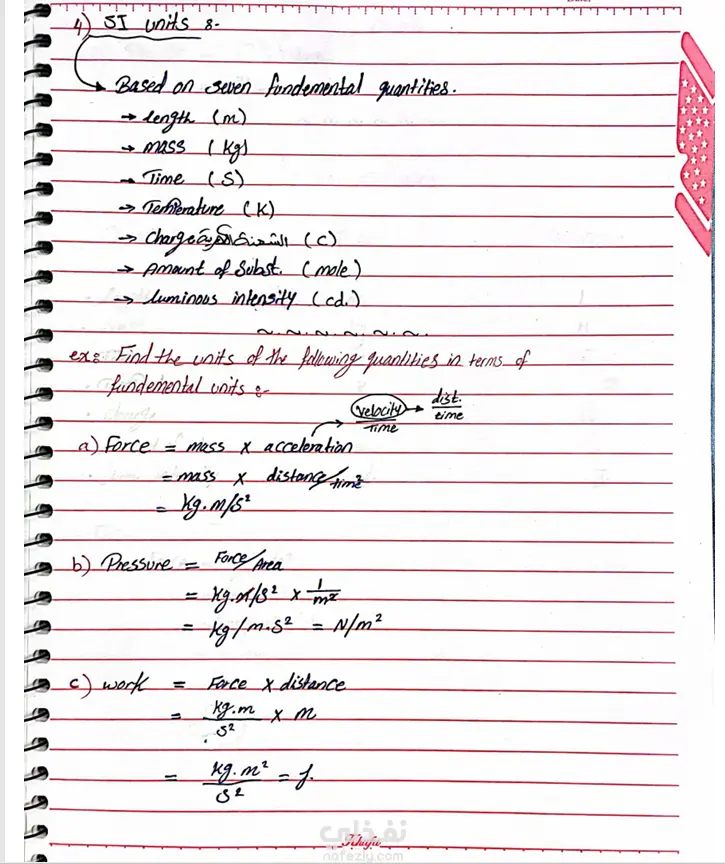 4) SI units :-
Based on seven fundemental quantities.
→ length (m)
→ mass (Kg)
→ Time (S)
→ Temperature (K)
→ charge الشحنة الكهربية (C)
→ Amount of Subst. (mole)
→ luminous intensity (cd.)
ex: Find the units of the following quantities in terms of
fundemental units :-
velocity/Time → dist./time
a) Force = mass x acceleration
= mass x distance/time²
= Kg.m/S²
b) Pressure = Force/Area
= Kg.m/S² x 1/m²
= Kg/m.S² = N/m²
c) work = Force x distance
= Kg.m/S² x m
= Kg.m²/S² = J.
نفذلي
nafezly.com